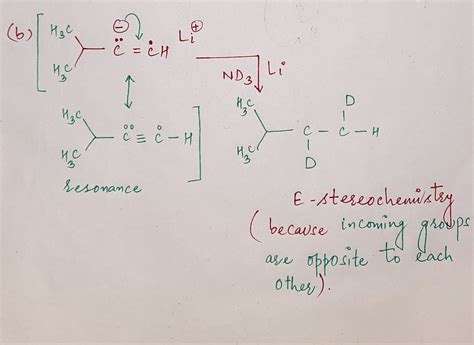 (b)
H3C
H3C
⊖
C̈ = ĊH
Li⊕
ND3
Li
H3C
H3C
C ≡ C – H
resonance
D
H3C
H3C
C – C – H
D
E-stereochemistry
(because incoming groups
are opposite to each
other).